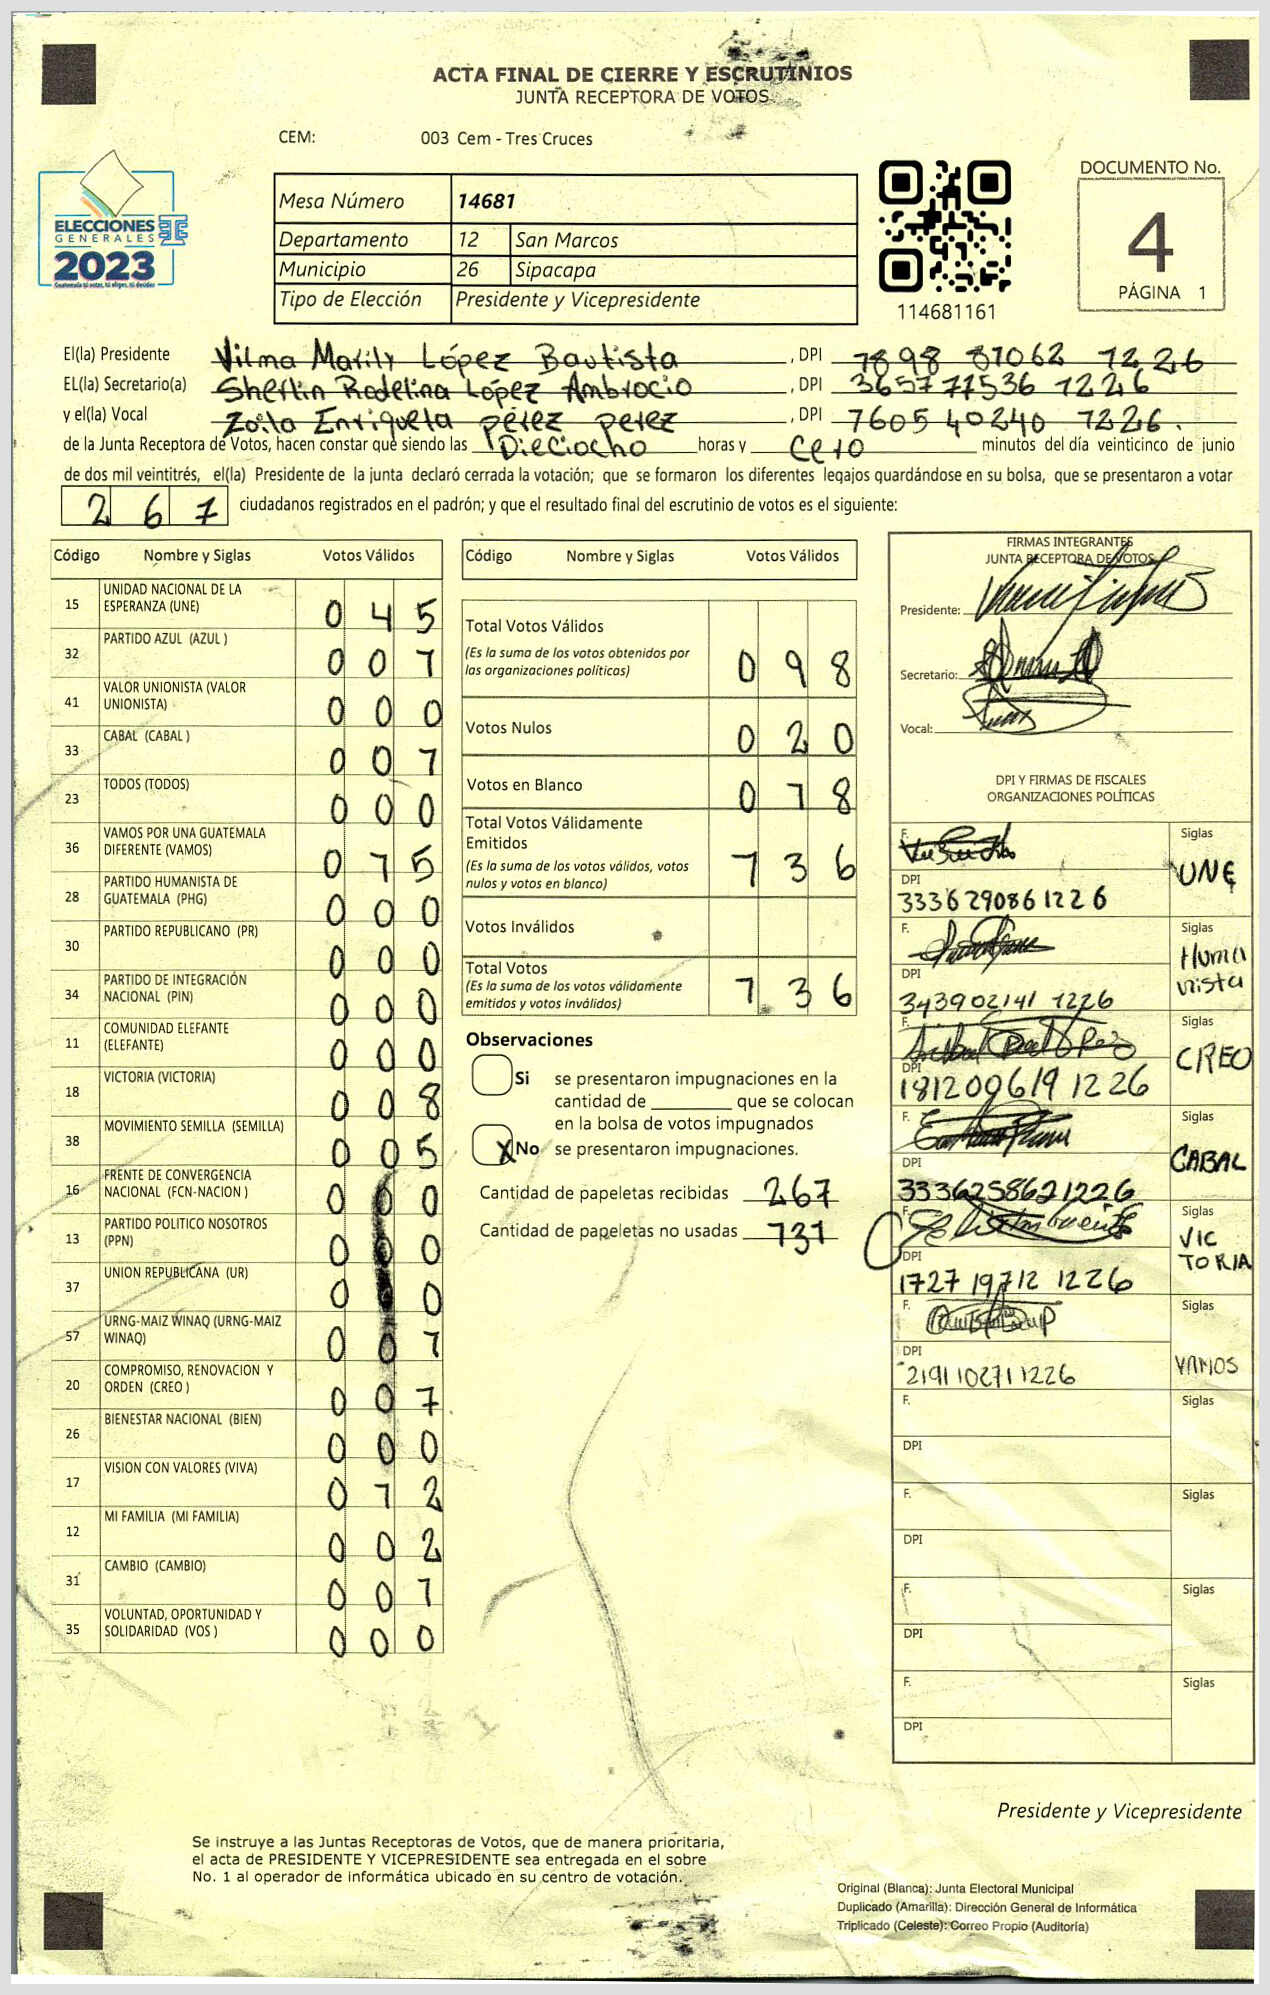 ACTA FINAL DE CIERRE Y ESCRUTINIOS
JUNTA RECEPTORA DE VOTOS
CEM: 003 Cem - Tres Cruces
DOCUMENTO No.
4
PÁGINA 1
ELECCIONES
GENERALES
2023
Guatemala tú votas, tú eliges, tú decides
Mesa Número 14681
Departamento 12 San Marcos
Municipio 26 Sipacapa
Tipo de Elección Presidente y Vicepresidente
114681161
El(la) Presidente Vilma Marily López Bautista , DPI 1898 81062 1226
EL(la) Secretario(a) Sherlin Rodelina López Ambrocio , DPI 365771536 1226
y el(la) Vocal Zoila Enriqueta pérez perez , DPI 7605 40240 1226.
de la Junta Receptora de Votos, hacen constar que siendo las Dieciocho horas y cero minutos del día veinticinco de junio
de dos mil veintitrés, el(la) Presidente de la junta declaró cerrada la votación; que se formaron los diferentes legajos guardándose en su bolsa, que se presentaron a votar
267 ciudadanos registrados en el padrón; y que el resultado final del escrutinio de votos es el siguiente:
Código Nombre y Siglas Votos Válidos
15 UNIDAD NACIONAL DE LA
ESPERANZA (UNE) 045
32 PARTIDO AZUL (AZUL ) 001
41 VALOR UNIONISTA (VALOR
UNIONISTA) 000
33 CABAL (CABAL ) 001
23 TODOS (TODOS) 000
36 VAMOS POR UNA GUATEMALA
DIFERENTE (VAMOS) 015
28 PARTIDO HUMANISTA DE
GUATEMALA (PHG) 000
30 PARTIDO REPUBLICANO (PR) 000
34 PARTIDO DE INTEGRACIÓN
NACIONAL (PIN) 000
11 COMUNIDAD ELEFANTE
(ELEFANTE) 000
18 VICTORIA (VICTORIA) 008
38 MOVIMIENTO SEMILLA (SEMILLA) 005
16 FRENTE DE CONVERGENCIA
NACIONAL (FCN-NACION ) 000
13 PARTIDO POLITICO NOSOTROS
(PPN) 000
37 UNION REPUBLICANA (UR) 000
57 URNG-MAIZ WINAQ (URNG-MAIZ
WINAQ) 001
20 COMPROMISO, RENOVACION Y
ORDEN (CREO ) 007
26 BIENESTAR NACIONAL (BIEN) 000
17 VISION CON VALORES (VIVA) 012
12 MI FAMILIA (MI FAMILIA) 002
31 CAMBIO (CAMBIO) 001
35 VOLUNTAD, OPORTUNIDAD Y
SOLIDARIDAD (VOS ) 000
Código Nombre y Siglas Votos Válidos
Total Votos Válidos
(Es la suma de los votos obtenidos por
las organizaciones políticas) 098
Votos Nulos 020
Votos en Blanco 018
Total Votos Válidamente
Emitidos
(Es la suma de los votos válidos, votos
nulos y votos en blanco) 136
Votos Inválidos
Total Votos
(Es la suma de los votos válidamente
emitidos y votos inválidos) 136
Observaciones
Si se presentaron impugnaciones en la
cantidad de ________ que se colocan
en la bolsa de votos impugnados
X No se presentaron impugnaciones.
Cantidad de papeletas recibidas 267
Cantidad de papeletas no usadas 131
FIRMAS INTEGRANTES
JUNTA RECEPTORA DE VOTOS
Presidente:
Secretario:
Vocal:
DPI Y FIRMAS DE FISCALES
ORGANIZACIONES POLÍTICAS
F. Siglas
UNE
DPI
333629086 1226
F. Siglas
Humanista
DPI
343902141 1226
F. Siglas
CREO
DPI
181209619 1226
F. Siglas
CABAL
DPI
3336258621226
F. Siglas
VICTORIA
DPI
1727 19712 1226
F. Siglas
VAMOS
DPI
2191102711226
F. Siglas
DPI
F. Siglas
DPI
F. Siglas
DPI
F. Siglas
DPI
Presidente y Vicepresidente
Se instruye a las Juntas Receptoras de Votos, que de manera prioritaria,
el acta de PRESIDENTE Y VICEPRESIDENTE sea entregada en el sobre
No. 1 al operador de informática ubicado en su centro de votación.
Original (Blanca): Junta Electoral Municipal
Duplicado (Amarilla): Dirección General de Informática
Triplicado (Celeste): Correo Propio (Auditoría)